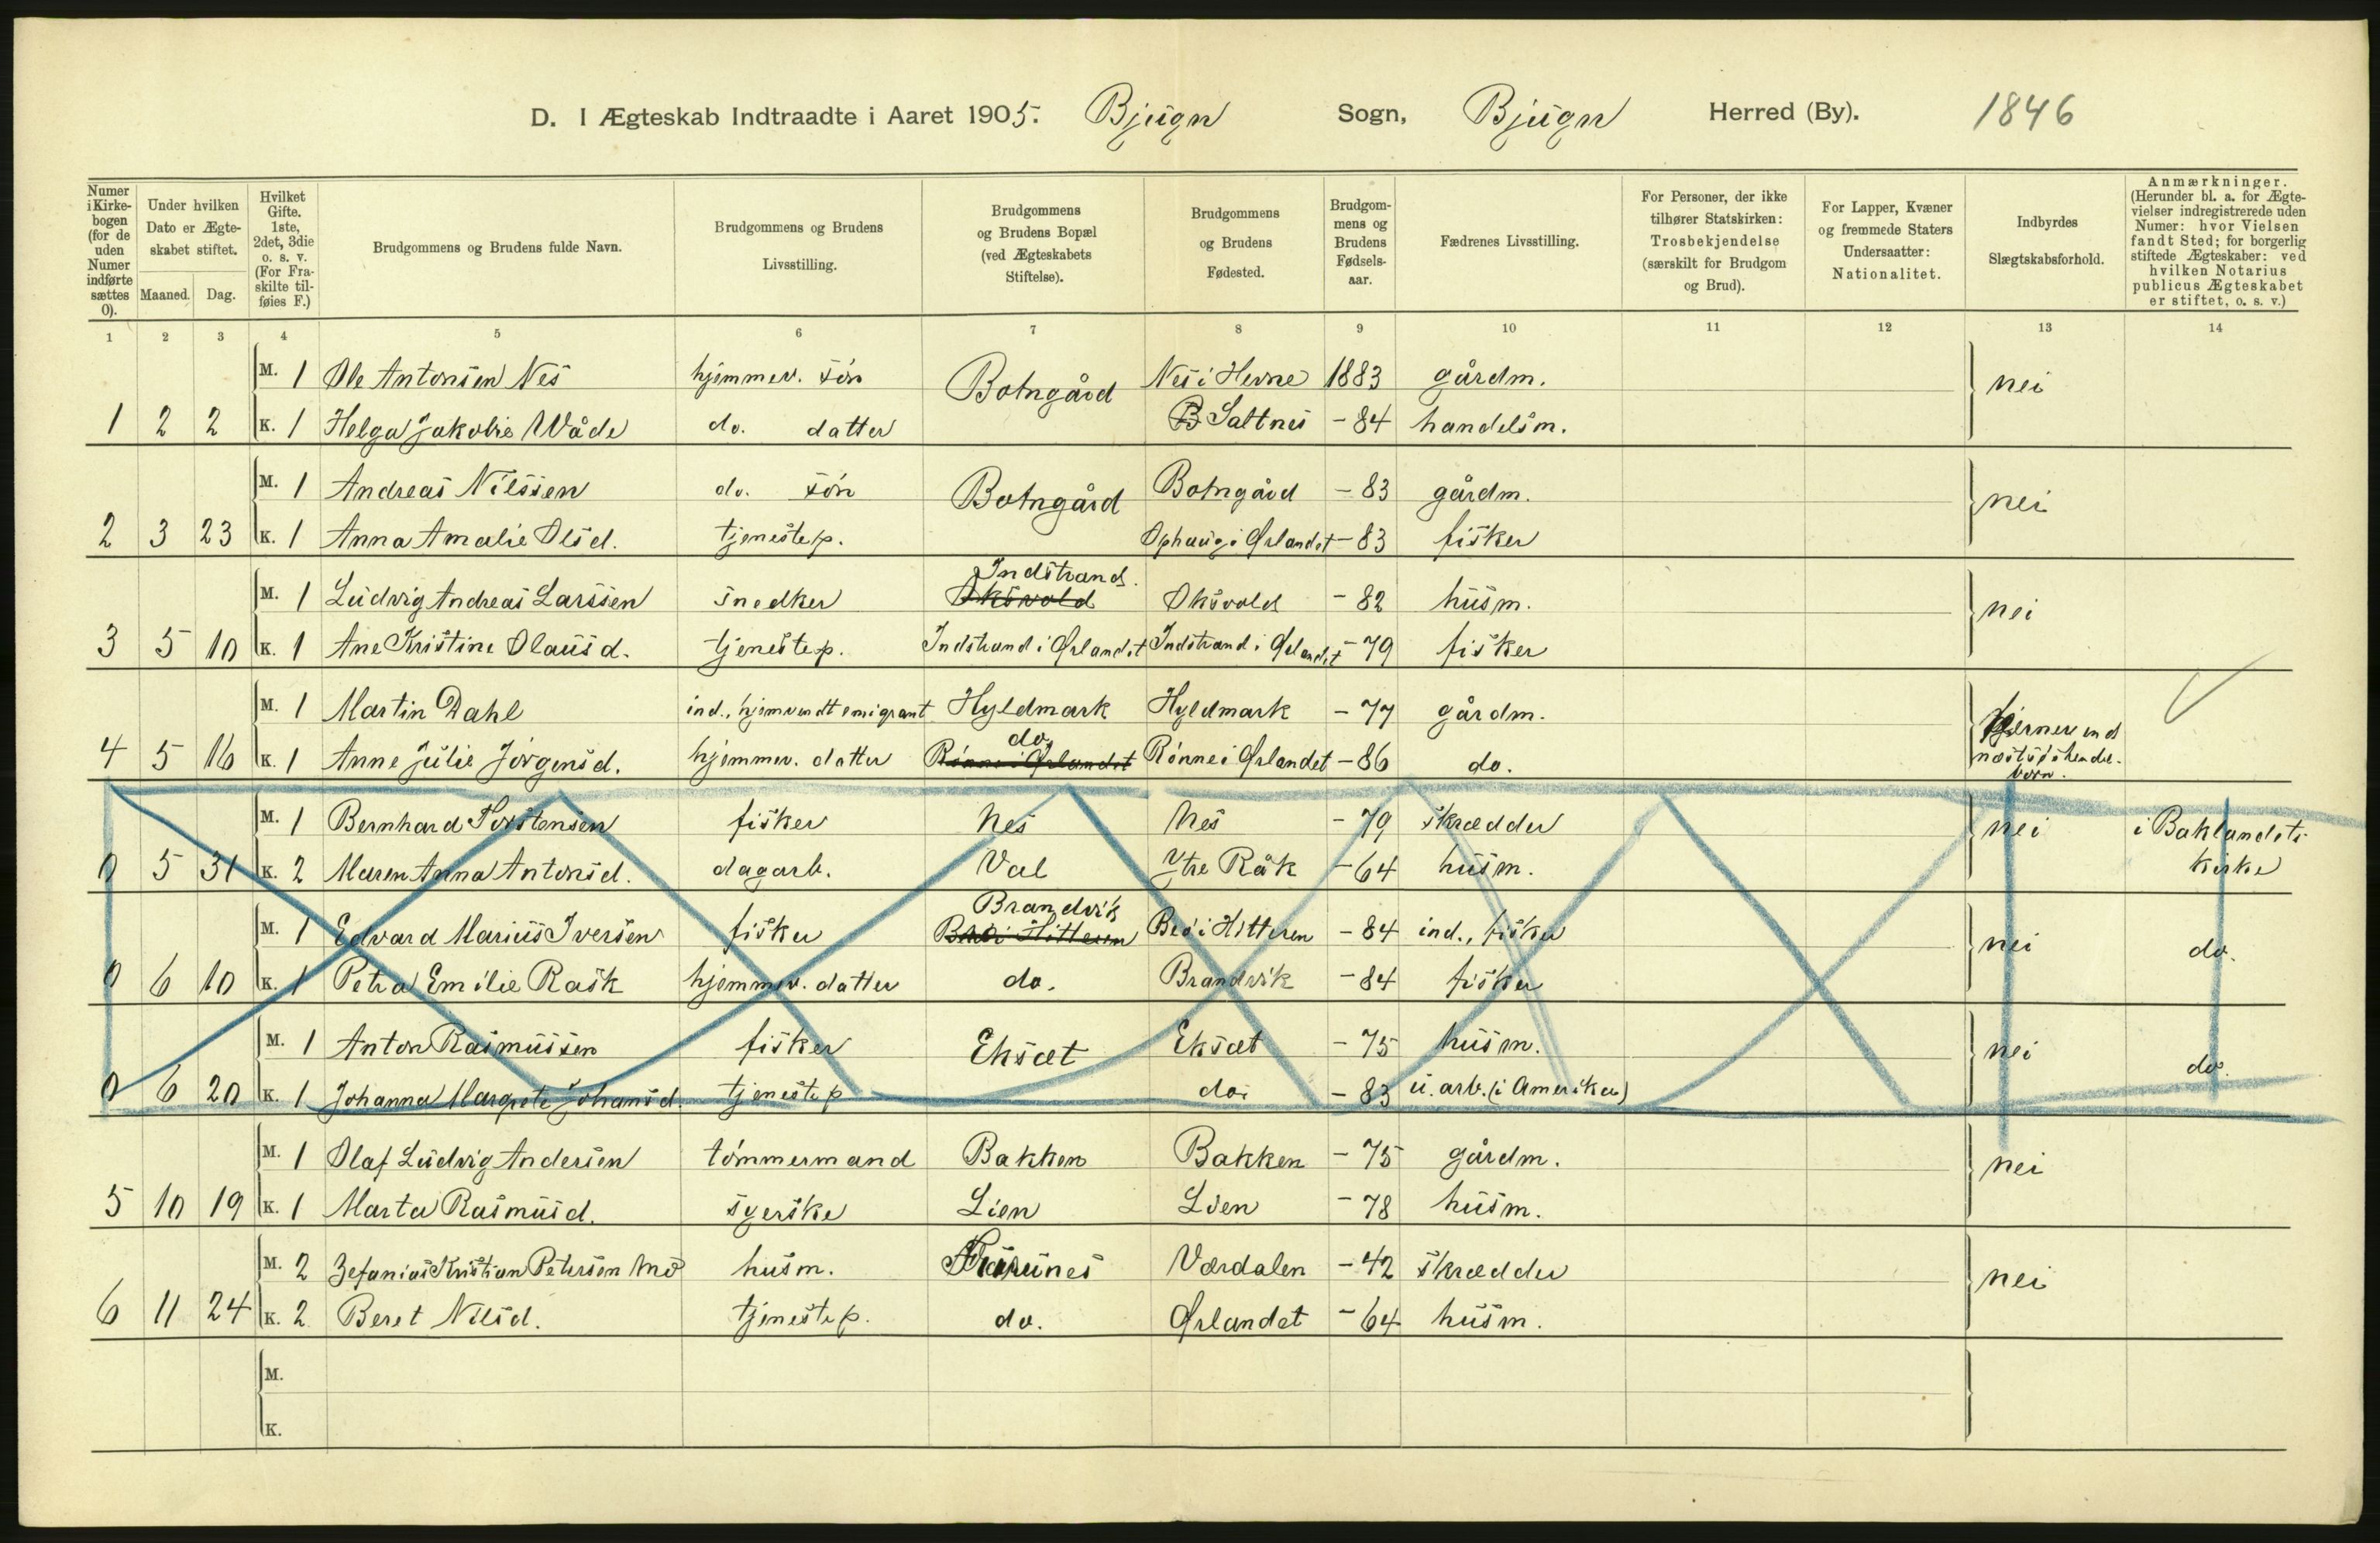 D. I Ægteskab Indtraadte i Aaret 1905. Bjugn Sogn, Bjugn Herred (By). 1846
Numer i Kirkebogen (for de uden Numer indførte sættes 0).
Under hvilken Dato er Ægteskabet stiftet.
Maaned. Dag.
Hvilket Gifte. 1ste, 2det, 3die o. s. v. (For Fraskilte tilføies F.)
Brudgommens og Brudens fulde Navn.
Brudgommens og Brudens Livsstilling.
Brudgommens og Brudens Bopæl (ved Ægteskabets Stiftelse).
Brudgommens og Brudens Fødested.
Brudgommens og Brudens Fødselsaar.
Fædrenes Livsstilling.
For Personer, der ikke tilhører Statskirken: Trosbekjendelse (særskilt for Brudgom og Brud).
For Lapper, Kvæner og fremmede Staters Undersaatter: Nationalitet.
Indbyrdes Slægtskabsforhold.
Anmærkninger. (Herunder bl. a. for Ægtevielser indregistrerede uden Numer: hvor Vielsen fandt Sted; for borgerlig stiftede Ægteskaber: ved hvilken Notarius publicus Ægteskabet er stiftet, o. s. v.)
1 2 3 4 5 6 7 8 9 10 11 12 13 14
M. 1 Ole Antonsen Nes hjemmev. søn Botngård Nes i Hevne 1883 gårdm. nei
1 2 2 K. 1 Helga Jakobie Wåde do. datter B Saltnes - 84 handelsm.
M. 1 Andreas Nilssen do. søn Botngård Botngård - 83 gårdm. nei
2 3 23 K. 1 Anna Amalie Olsd. tjenestep. Ophaug i Ørlandet - 83 fisker
M. 1 Ludvig Andreas Larssen snedker Indstrand. Oksvold Oksvold - 82 husm. nei
3 5 10 K. 1 Ane Kristine Olausd. tjenestep. Indstrand i Ørlandet Indstrand i Ørlandet - 79 fisker
M. 1 Martin Dahl ind., hjemvendt emigrant Hyldmark Hyldmark - 77 gårdm.
4 5 16 K. 1 Anne Julie Jørgensd. hjemmev. datter do. Rønne i Ørlandet Rønne i Ørlandet - 86 do. fjerner end næstsøskendebørn.
M. 1 Bernhard Torstensen fisker Nes Nes - 79 skrædder nei i Baklandets
0 5 31 K. 2 Maren Anna Antonsd. dagarb. Val Ytre Råk - 64 husm. kirke
M. 1 Edvard Marius Iversen fisker Brandvik Bes i Hitteren - 84 ind., fisker nei do.
0 6 10 K. 1 Petra Emilie Rask hjemmev. datter do. Brandvik - 84 fisker
M. 1 Anton Rasmussen fisker Eksæt Eksæt - 75 husm. nei do.
0 6 20 K. 1 Johanna Margrete Johansd. tjenestep do. - 83 u. arb. (i Amerika)
M. 1 Olaf Ludvig Andersen tømmermand Bakken Bakken - 75 gårdm. nei
5 10 19 K. 1 Marta Rasmusd. syerske Lien Lien - 78 husm.
M. 2 Zefanias Kristian Petersen Mo husm. Værdalen - 42 skrædder nei
6 11 24 K. 2 Beret Nilsd. tjenestep. do. Ørlandet - 64 husm.
M.
K.